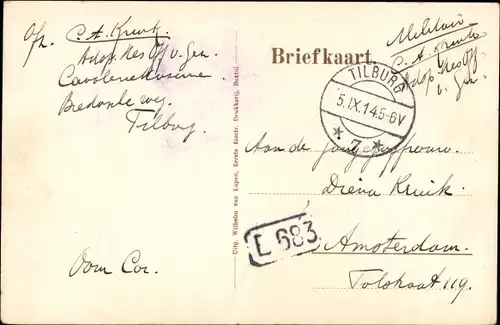 Afz. C. A. Kruik
Adsp. Res Off v. Gen.
Cavaleriekazerne
Bredasche weg.
Tilburg
Oom Cor.
Uitg. Wilhelm van Eupen, Eerste Electr. Drukkerij, Boxtel.
Briefkaart.
Militair
C. A. Kruik
Adsp. Res Off
v. Gen.
TILBURG
5.IX.14.5-6V
* 7 *
Aan de Jongejuffrouw
Diena Kruik
E 683
Amsterdam.
Tolstraat 119.